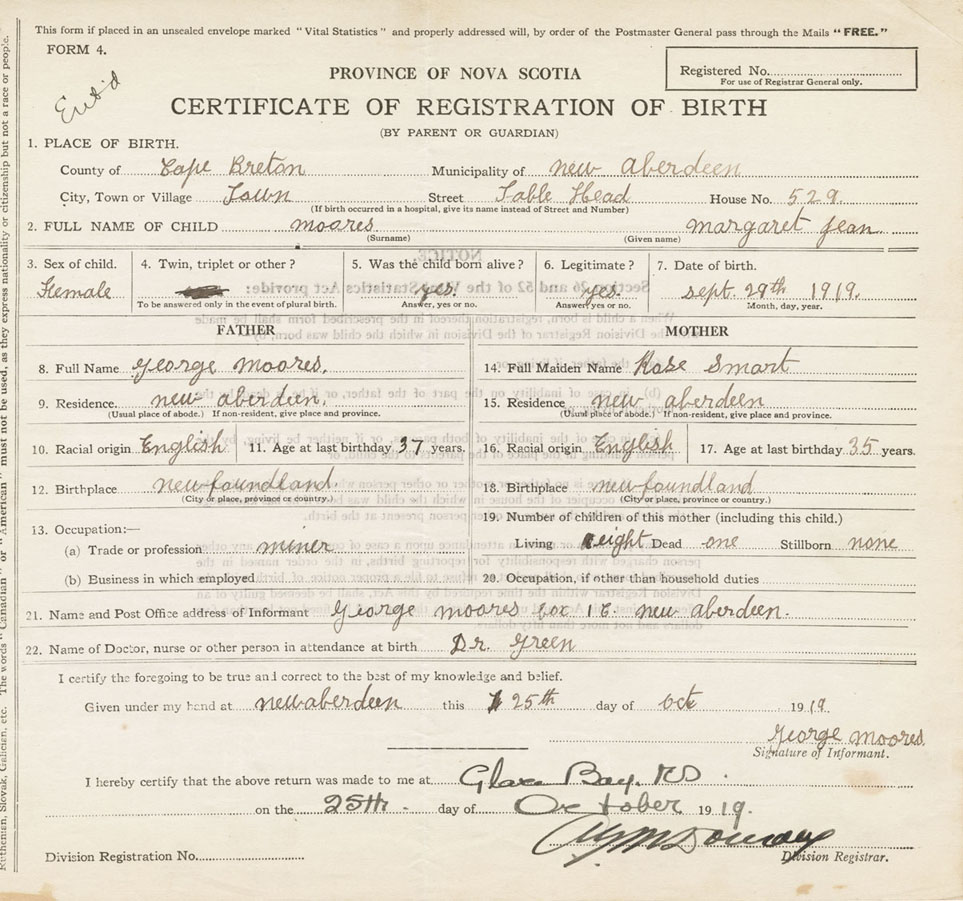 This form if placed in an unsealed envelope marked "Vital Statistics" and properly addressed will, by order of the Postmaster General pass through the Mails "FREE."
FORM 4.
Ent'd
PROVINCE OF NOVA SCOTIA
Registered No.
For use of Registrar General only.
CERTIFICATE OF REGISTRATION OF BIRTH
(BY PARENT OR GUARDIAN)
1. PLACE OF BIRTH.
County of Cape Breton Municipality of New Aberdeen
City, Town or Village Town Street Table Head House No. 529.
(If birth occurred in a hospital, give its name instead of Street and Number)
2. FULL NAME OF CHILD moores margaret Jean
(Surname) (Given name)
3. Sex of child. 4. Twin, triplet or other? 5. Was the child born alive? 6. Legitimate? 7. Date of birth.
Female yes. yes. sept. 29th 1919.
To be answered only in the event of plural birth. Answer, yes or no. Answer, yes or no. Month, day, year.
FATHER
8. Full Name George moores.
9. Residence. new aberdeen.
(Usual place of abode.) If non-resident, give place and province.
10. Racial origin English 11. Age at last birthday 37 years.
12. Birthplace newfoundland.
(City or place, province or country.)
13. Occupation:—
(a) Trade or profession miner
(b) Business in which employed
MOTHER
14. Full Maiden Name Rose Smart
15. Residence new aberdeen
(Usual place of abode.) If non-resident, give place and province.
16. Racial origin English 17. Age at last birthday 35 years.
18. Birthplace newfoundland
(City or place, province or country.)
19. Number of children of this mother (including this child.)
Living eight Dead one Stillborn none
20. Occupation, if other than household duties
21. Name and Post Office address of Informant George moores box 16 new aberdeen.
22. Name of Doctor, nurse or other person in attendance at birth Dr. Green
I certify the foregoing to be true and correct to the best of my knowledge and belief.
Given under my hand at new aberdeen this 25th day of oct 1919
George moores
Signature of Informant.
I hereby certify that the above return was made to me at Glace Bay. N.S.
on the 25th day of October 1919.
Division Registration No.
Division Registrar.
Ruthenian, Slovak, Galician, etc. The words "Canadian" or "American" must not be used, as they express nationality or citizenship but not a race or people.